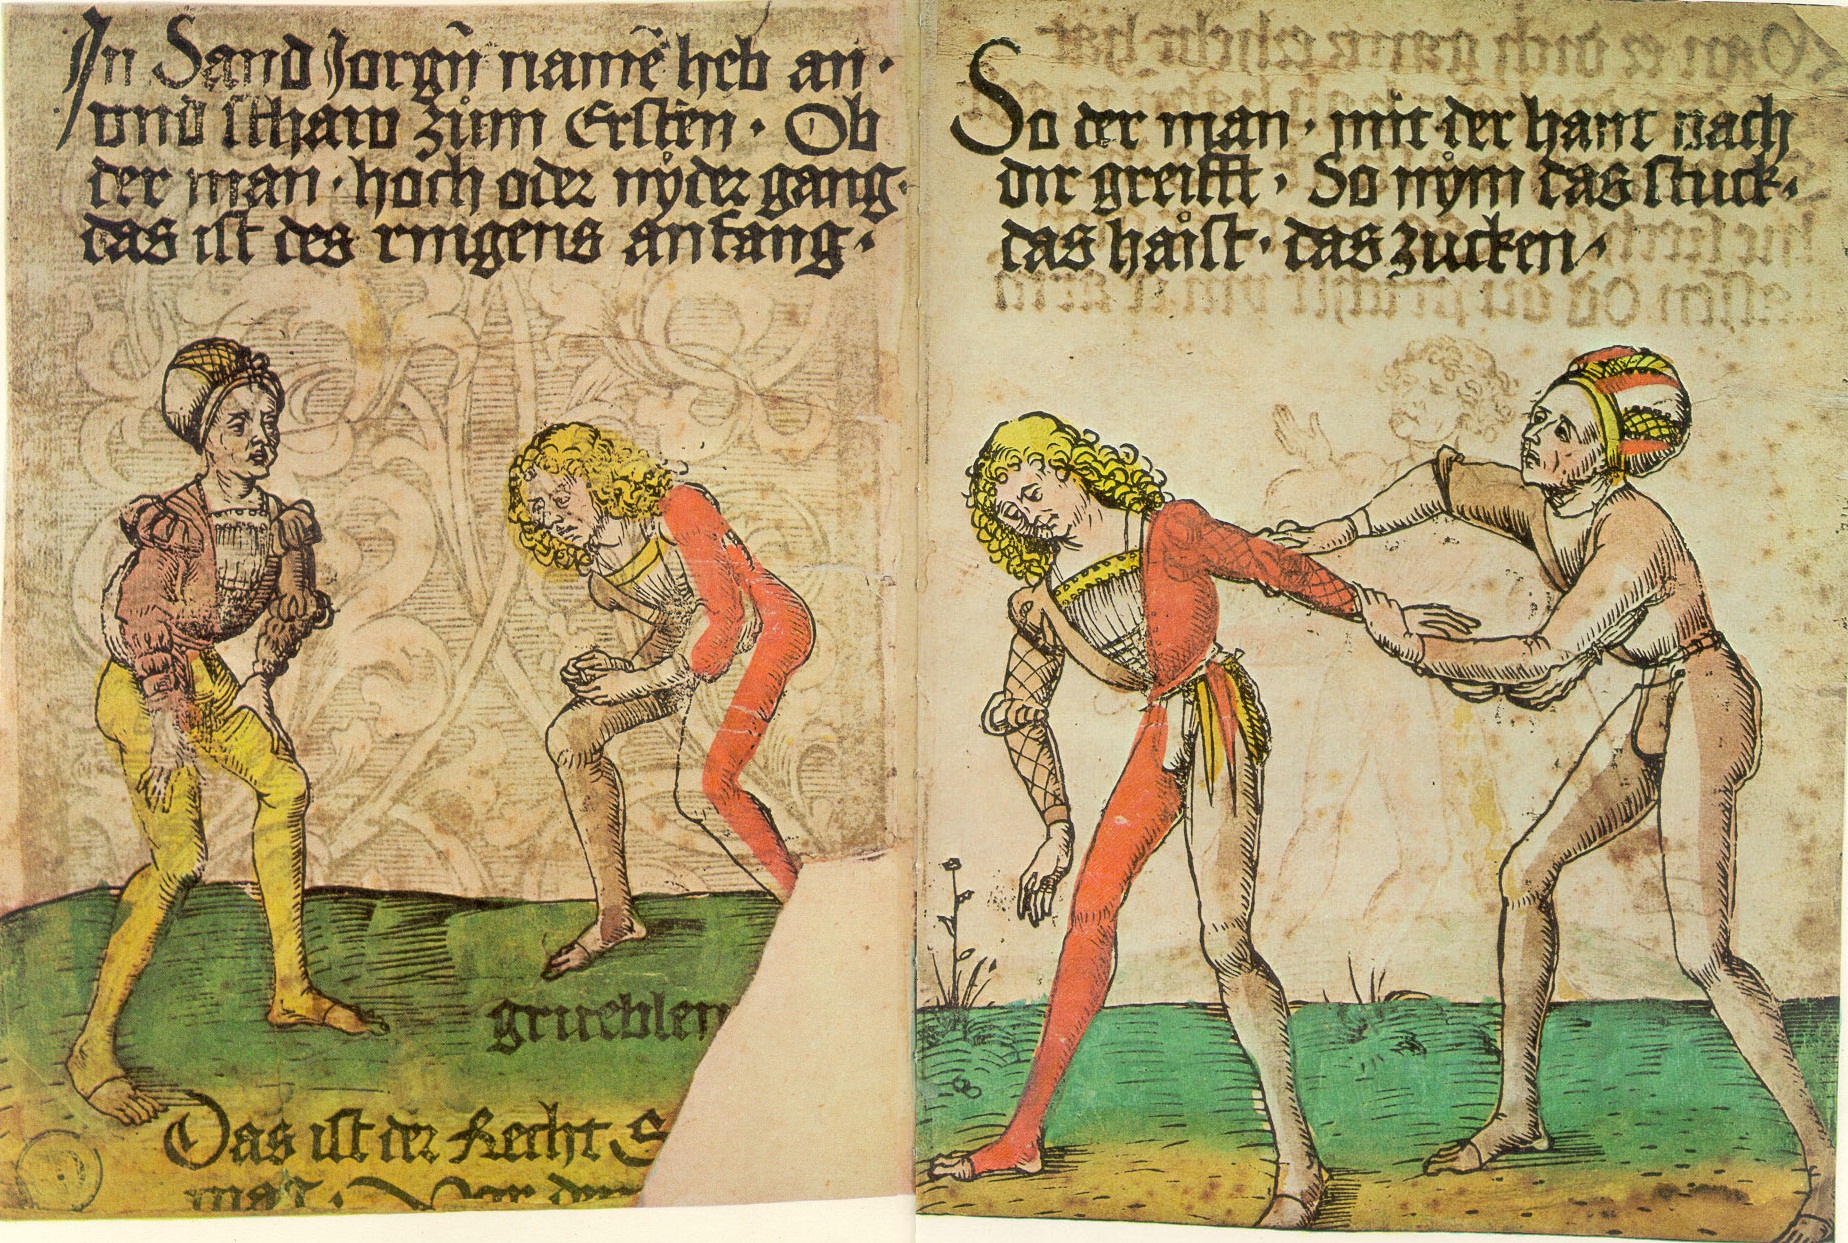 In Sand Jorgn̄ namē heb an ·
vnd schaw zům Ersten · Ob
der man · hoch oder nyder gang ·
das ist des ringens anfang ·
grueblen
Das ist der Recht S
mas · Vor dem
So der man · mit der hant nach
dir greifft · So nym das stuck ·
das haist · das zucken ·
8